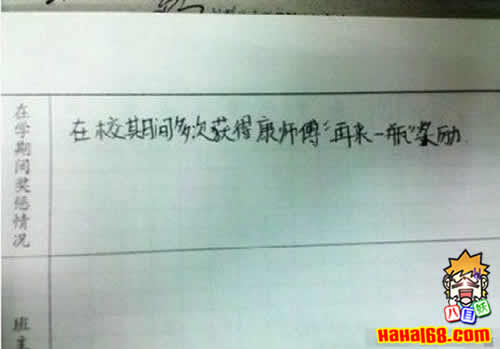 在学期间奖惩情况
在校期间多次获得康师傅“再来一瓶”奖励.
班主
八目妖
haha168.com